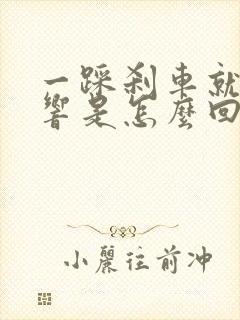 一踩刹車就
響是怎麼回
小麗往前冲